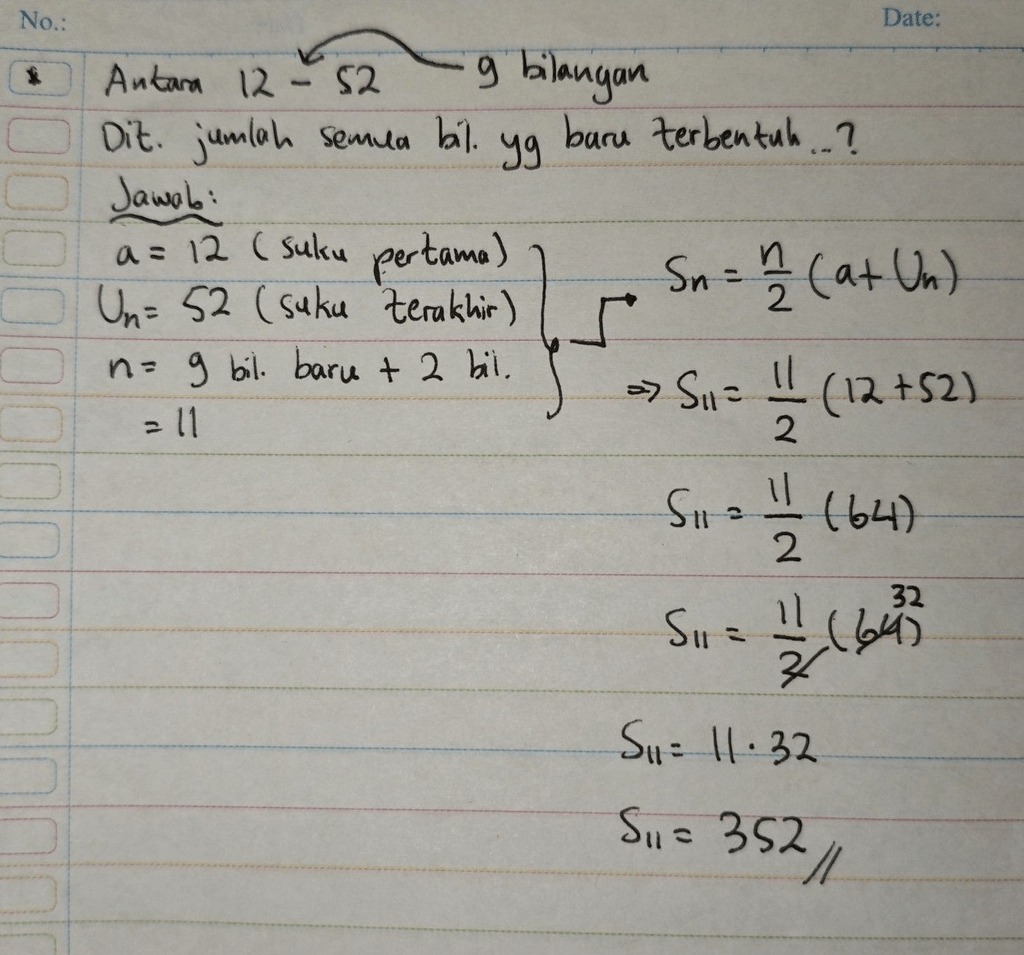 No.:
Date:
* Antara 12 - 52 9 bilangan
Dit. jumlah semua bil. yg baru terbentuk..?
Jawab:
a = 12 (suku pertama)
Un = 52 (suku terakhir)
n = 9 bil. baru + 2 bil.
= 11
Sn = n/2 (a + Un)
=> S11 = 11/2 (12 + 52)
S11 = 11/2 (64)
S11 = 11/2 (64) 32
S11 = 11 · 32
S11 = 352 //